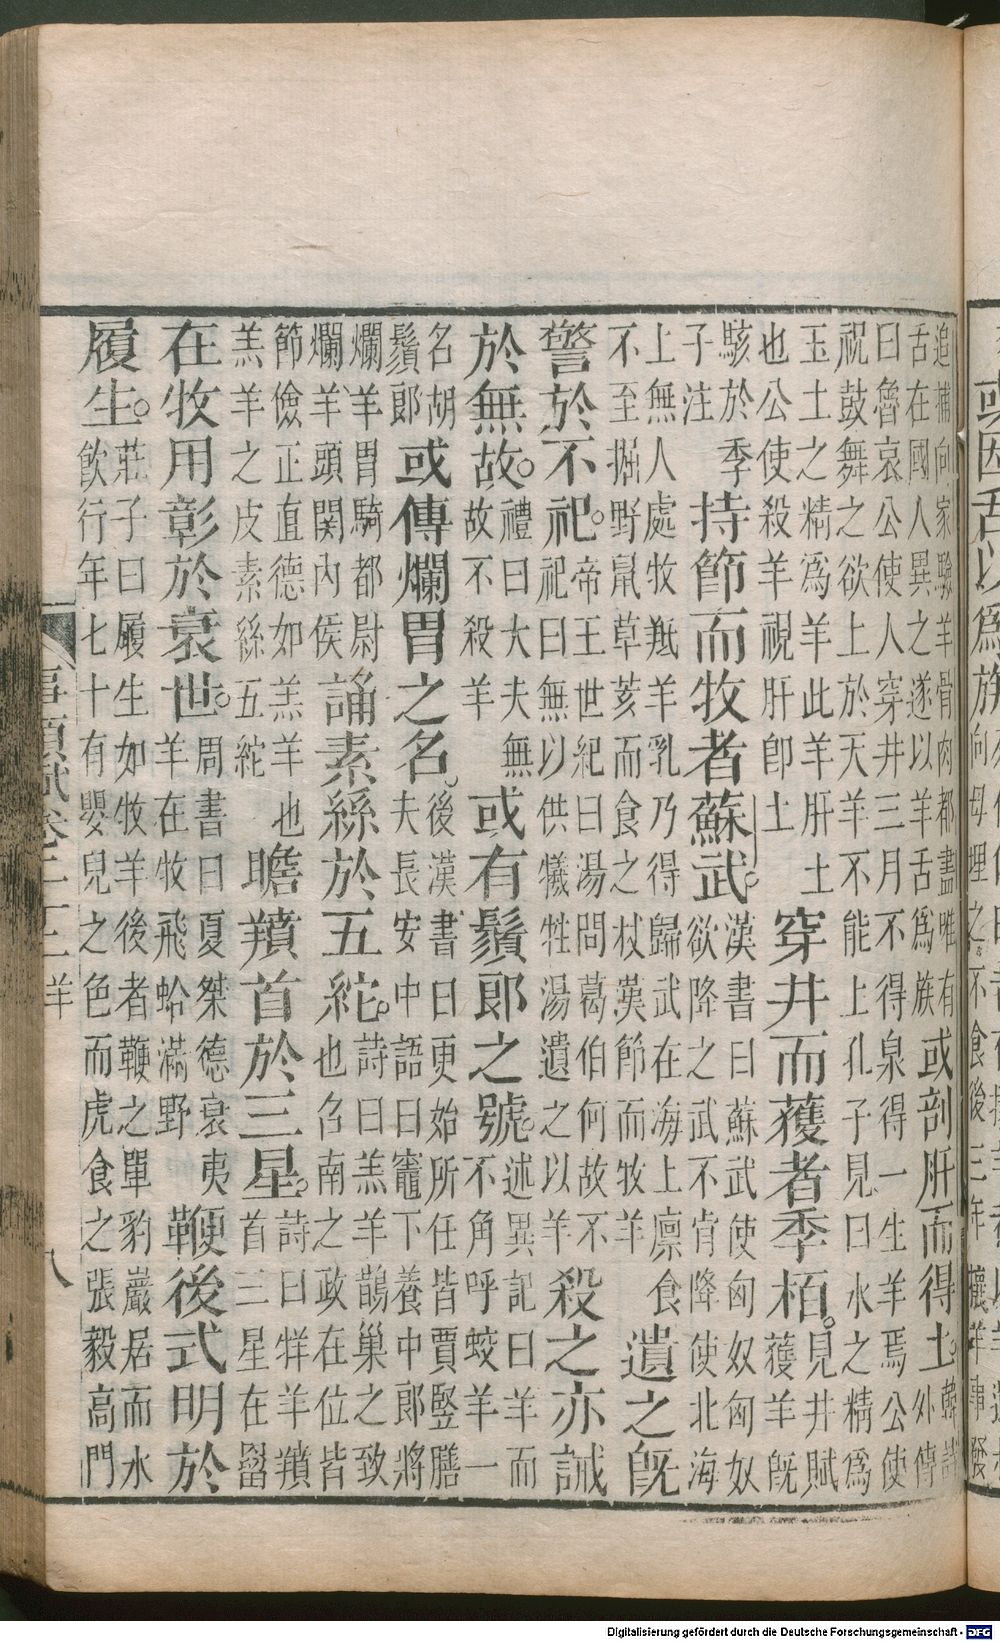 或因舌以為族
向母埋之不食後三年攘羊事發
追捕向家驗羊骨肉都盡唯有
舌在國人異之遂以羊舌為族
或剖肝而得土。
韓詩
外傳
曰魯哀公使人穿井三月不得泉得一生羊焉公使
祝鼓舞之欲上於天羊不能上孔子見曰水之精為
玉土之精為羊此羊肝土
也公使殺羊視肝卽土
穿井而獲者季栢。
見井賦
獲羊既
駭於季
子注
持節而牧者蘇武。
漢書曰蘇武使匈奴匈奴
欲降之武不肯降使北海
上無人處牧羝羊乳乃得歸武在海上廩食
不至掘野鼠草荄而食之杖漢節而牧羊
遺之既
警於不祀。
帝王世紀曰湯問葛伯何故不
祀曰無以供犧牲湯遺之以羊
殺之亦誡
於無故。
禮曰大夫無
故不殺羊
或有鬚郎之號。
述異記曰羊而
不角呼蛟羊一
名胡
鬚郎
或傳爛胃之名。
後漢書曰更始所任皆賈竪膳
夫長安中語曰竈下養中郎將
爛羊胃騎都尉
爛羊頭關內侯
誦素絲於五紽。
詩曰羔羊鵲巢之致
也召南之政在位皆
節儉正直德如羔羊也
羔羊之皮素絲五紽
瞻羵首於三星。
詩曰牂羊羵
首三星在罶
在牧用彰於衰世。
周書曰夏桀德衰夷
羊在牧飛蛤滿野
鞭後式明於
履生。
莊子曰履生如牧羊後者鞭之單豹巖居而水
飲行年七十有嬰兒之色而虎食之張毅高門
事類賦卷二十二 羊 八
Digitalisierung gefördert durch die Deutsche Forschungsgemeinschaft - DFG